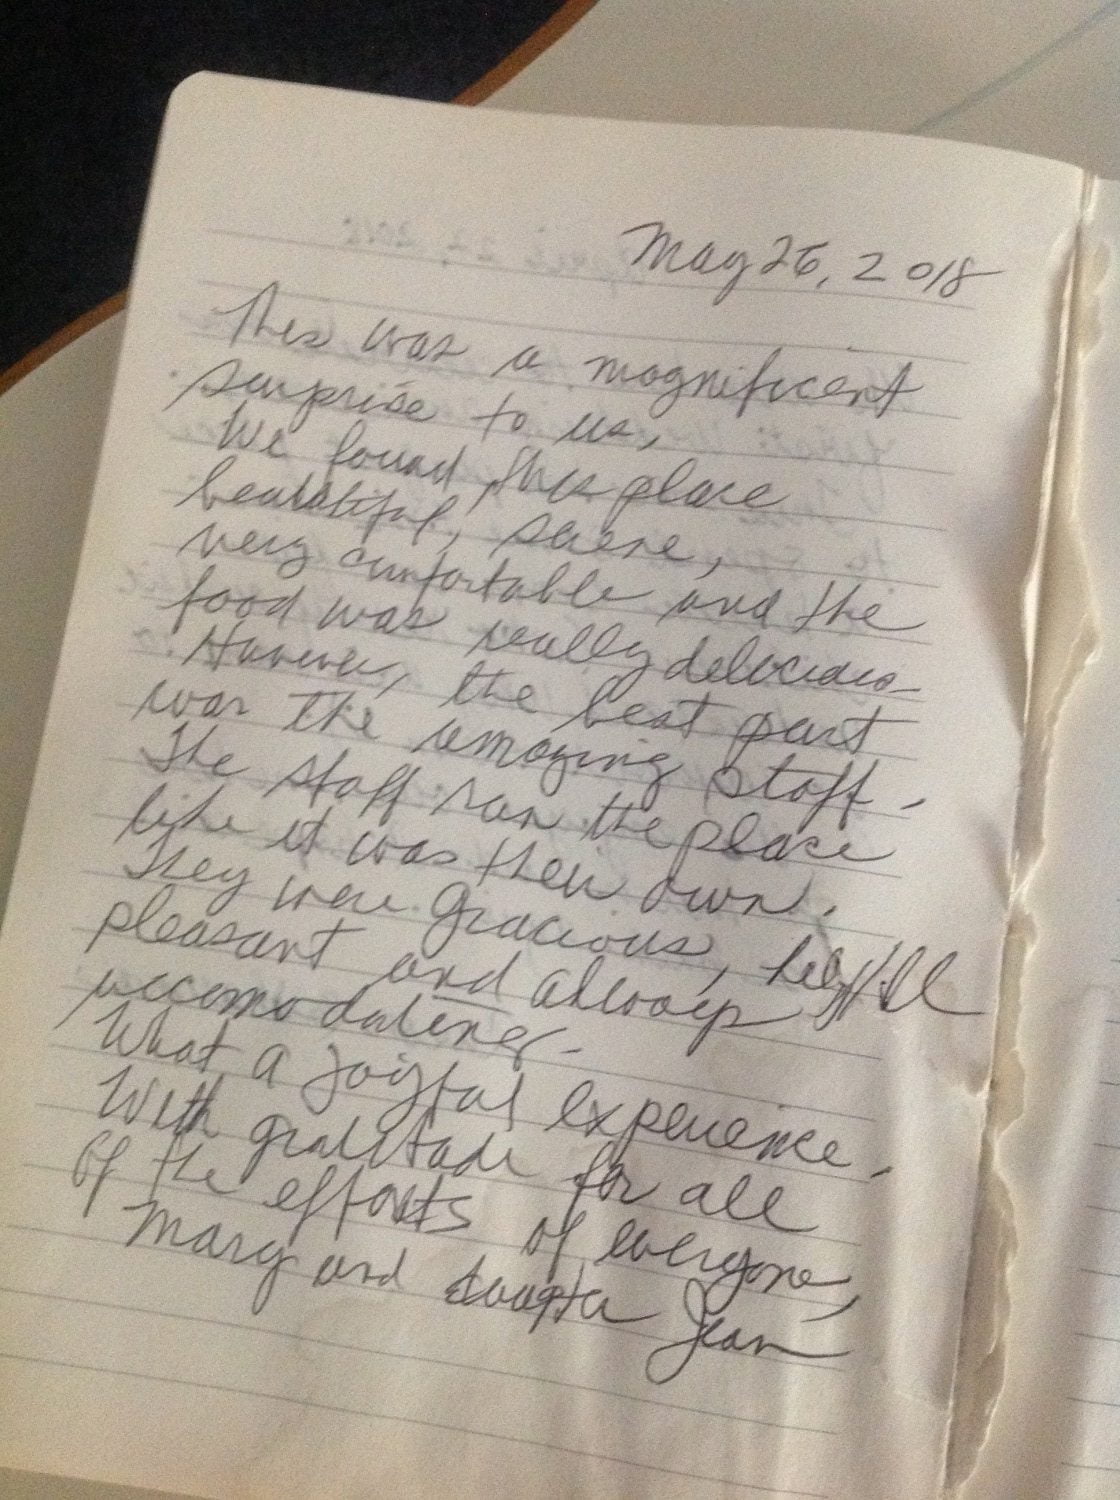 May 26, 2018
This was a magnificent
surprise to us,
We found this place
beautiful, serene,
very comfortable and the
food was really delicious
However, the best part
was the amazing staff.
The staff ran the place
like it was their own.
They were gracious, helpful
pleasant and always
accomodating.
What a joyful experience.
With gratitude for all
of the efforts of everyone,
Mary and daughter Jean